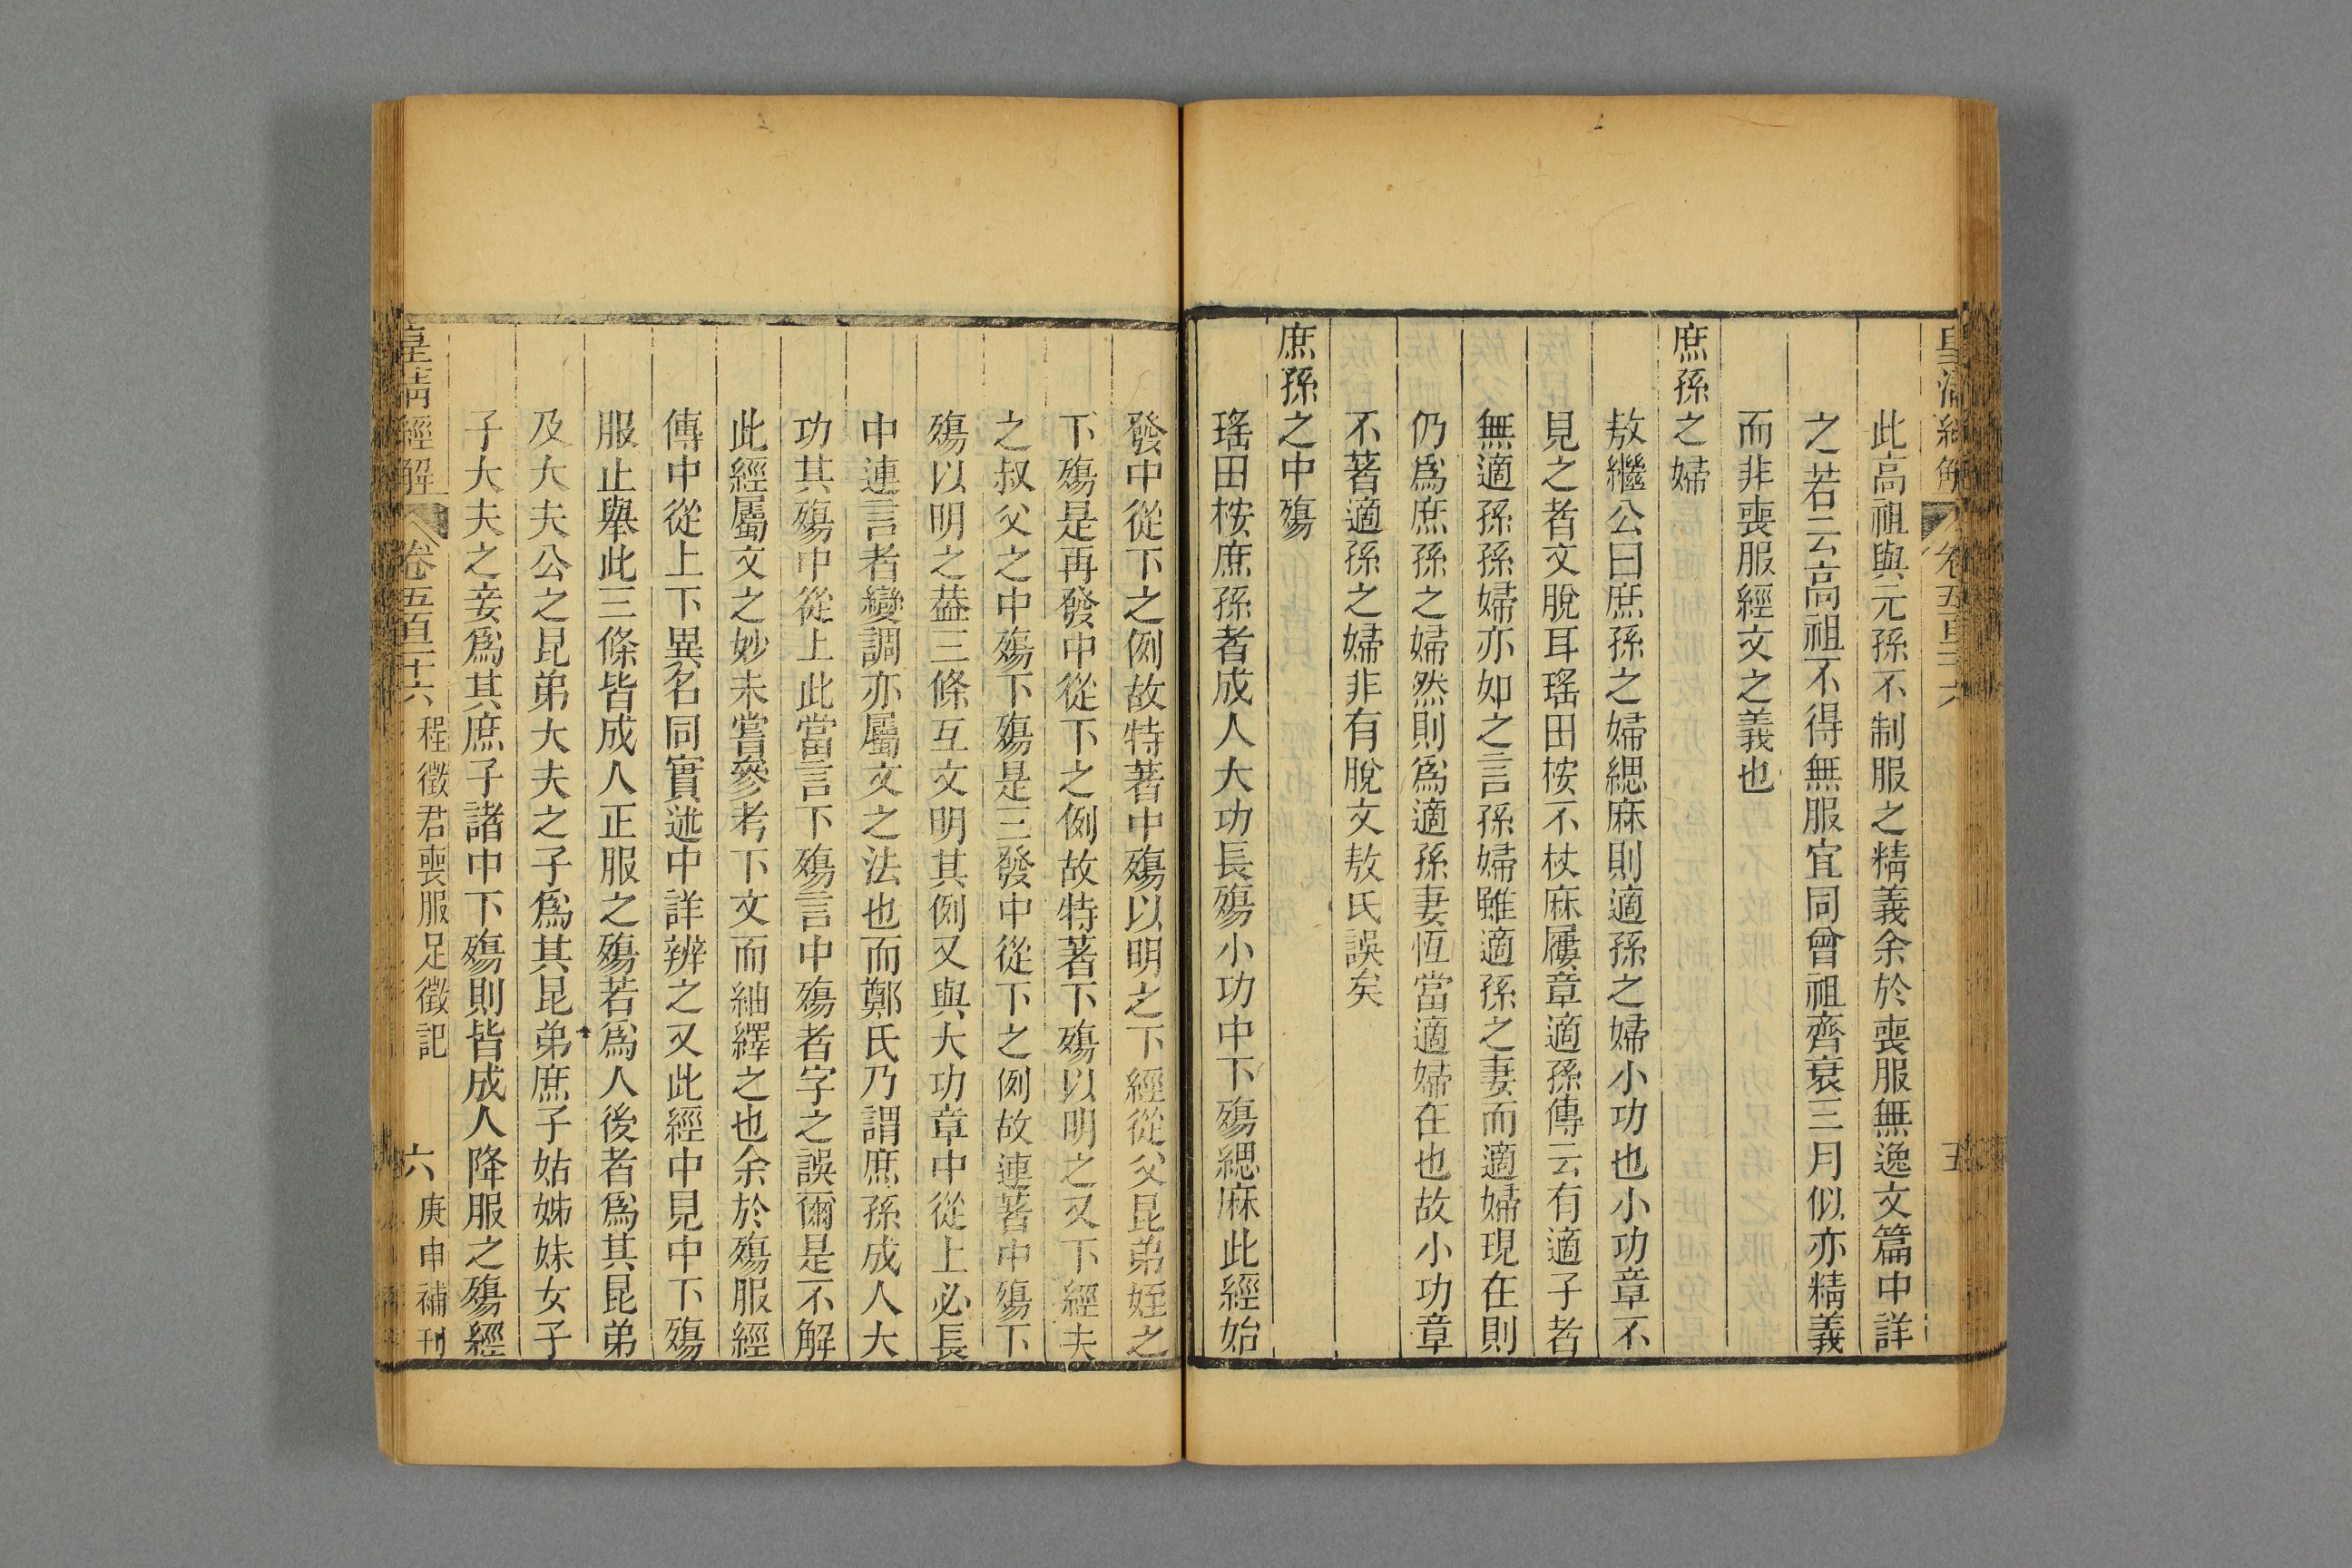 皇清經解 卷五百二十六 五
此高祖與元孫不制服之精義余於喪服無逸文篇中詳
之若云高祖不得無服宜同曾祖齊衰三月似亦精義
而非喪服經文之義也
庶孫之婦
敖繼公曰庶孫之婦緦麻則適孫之婦小功也小功章不
見之者文脫耳瑤田桉不杖麻屨章適孫傳云有適子者
無適孫孫婦亦如之言孫婦雖適孫之妻而適婦現在則
仍爲庶孫之婦然則爲適孫妻恆當適婦在也故小功章
不著適孫之婦非有脫文敖氏誤矣
庶孫之中殤
瑤田桉庶孫者成人大功長殤小功中下殤緦麻此經始
發中從下之例故特著中殤以明之下經從父昆弟姪之
下殤是再發中從下之例故特著下殤以明之又下經夫
之叔父之中殤下殤是三發中從下之例故連著中殤下
殤以明之葢三條互文明其例又與大功章中從上必長
中連言者變調亦屬文之法也而鄭氏乃謂庶孫成人大
功其殤中從上此當言下殤言中殤者字之誤爾是不解
此經屬文之妙未嘗參考下文而紬繹之也余於殤服經
傳中從上下異名同實述中詳辨之又此經中見中下殤
服止舉此三條皆成人正服之殤若爲人後者爲其昆弟
及大夫公之昆弟大夫之子爲其昆弟庶子姑姊妹女子
子大夫之妾爲其庶子諸中下殤則皆成人降服之殤經
皇清經解 卷五百二十六 程徵君喪服足徵記 六 庚申補刊